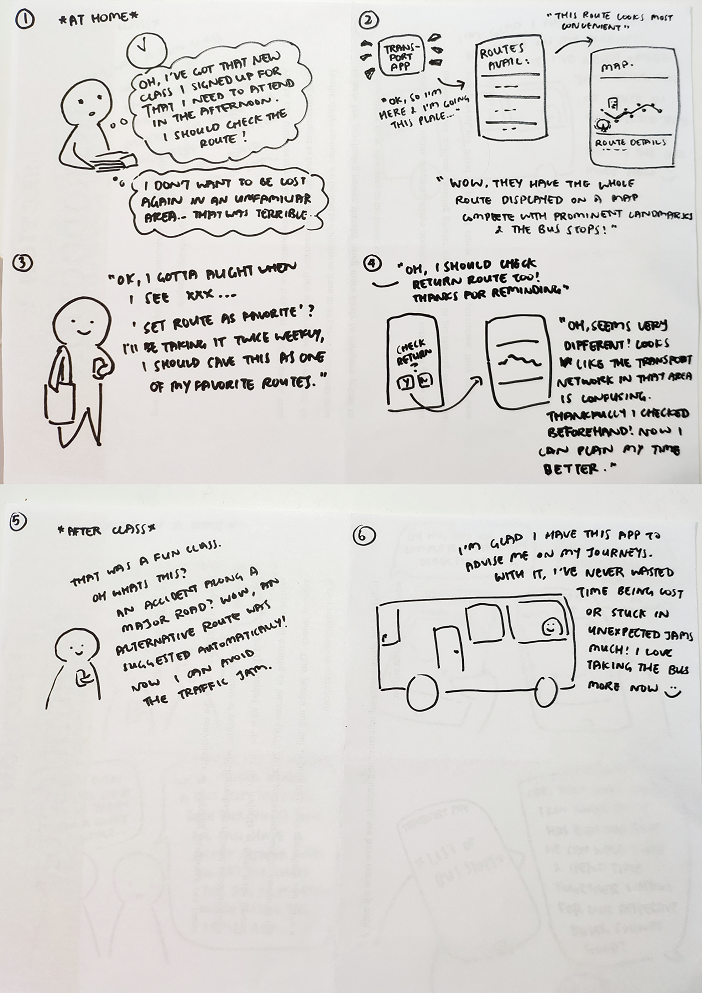 1
*AT HOME*
OH, I'VE GOT THAT NEW
CLASS I SIGNED UP FOR
THAT I NEED TO ATTEND
IN THE AFTERNOON.
I SHOULD CHECK THE
ROUTE!
I DON'T WANT TO BE LOST
AGAIN IN AN UNFAMILIAR
AREA... THAT WAS TERRIBLE...
2
TRANS-
PORT
APP
"OK, SO I'M
HERE & I'M GOING
THIS PLACE..."
ROUTES
AVAIL:
"THIS ROUTE LOOKS MOST
CONVENIENT"
MAP.
ROUTE DETAILS
"WOW, THEY HAVE THE WHOLE
ROUTE DISPLAYED ON A MAP
COMPLETE WITH PROMINENT LANDMARKS
& THE BUS STOPS!"
3
"OK, I GOTTA ALIGHT WHEN
I SEE XXX...
'SET ROUTE AS FAVORITE'?
I'LL BE TAKING IT TWICE WEEKLY,
I SHOULD SAVE THIS AS ONE
OF MY FAVORITE ROUTES."
4
"OH, I SHOULD CHECK
RETURN ROUTE TOO!
THANKS FOR REMINDING"
CHECK
RETURN
?
Y N
"OH, SEEMS VERY
DIFFERENT! LOOKS
LIKE THE TRANSPORT
NETWORK IN THAT AREA
IS CONFUSING.
THANKFULLY I CHECKED
BEFOREHAND! NOW I
CAN PLAN MY TIME
BETTER."
5
*AFTER CLASS*
THAT WAS A FUN CLASS.
OH WHATS THIS?
AN ACCIDENT ALONG A
MAJOR ROAD? WOW, AN
ALTERNATIVE ROUTE WAS
SUGGESTED AUTOMATICALLY!
NOW I CAN AVOID
THE TRAFFIC JAM.
6
I'M GLAD I HAVE THIS APP TO
ADVISE ME ON MY JOURNEYS.
WITH IT, I'VE NEVER WASTED
TIME BEING LOST
OR STUCK IN
UNEXPECTED JAMS
MUCH! I LOVE
TAKING THE BUS
MORE NOW